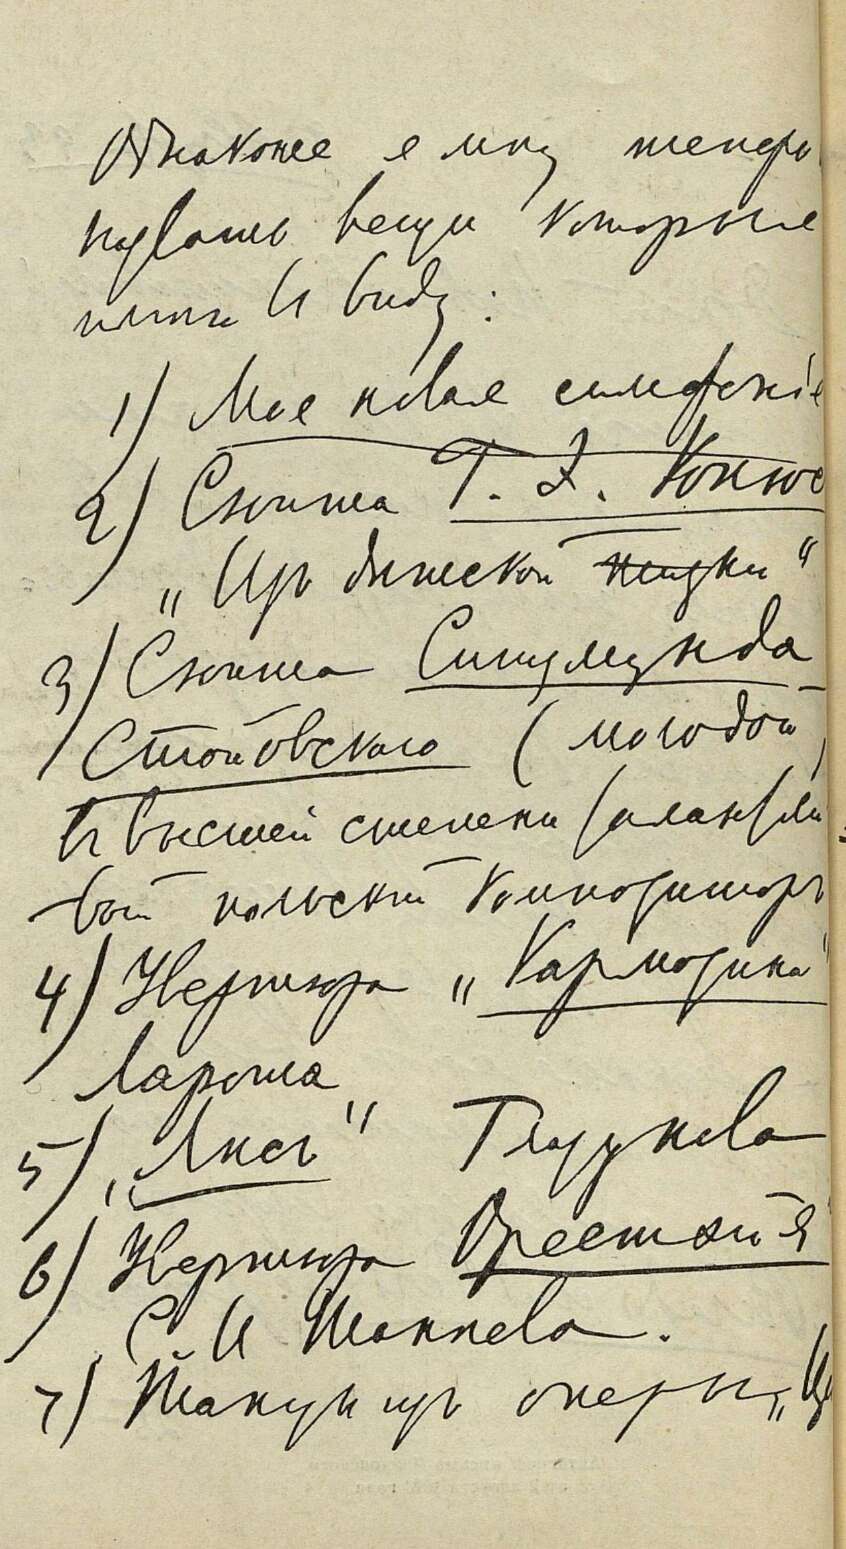 Однакоже я могу теперь
назвать вещи которые
имею въ виду:
1) Моя новая симфонія
2) Сюита Г. Э. Конюса
„Изъ дѣтской жизни“
3) Сюита Сигизмунда
Стойовскаго (молодой,
въ высшей степени талантли
вый польскій композиторъ
4) Увертюра „Кармозина“
Лароша
5) „Лѣсъ“ Глазунова
6) Увертюра Орестейя
С. И Танѣева.
7) Танцы изъ оперы „